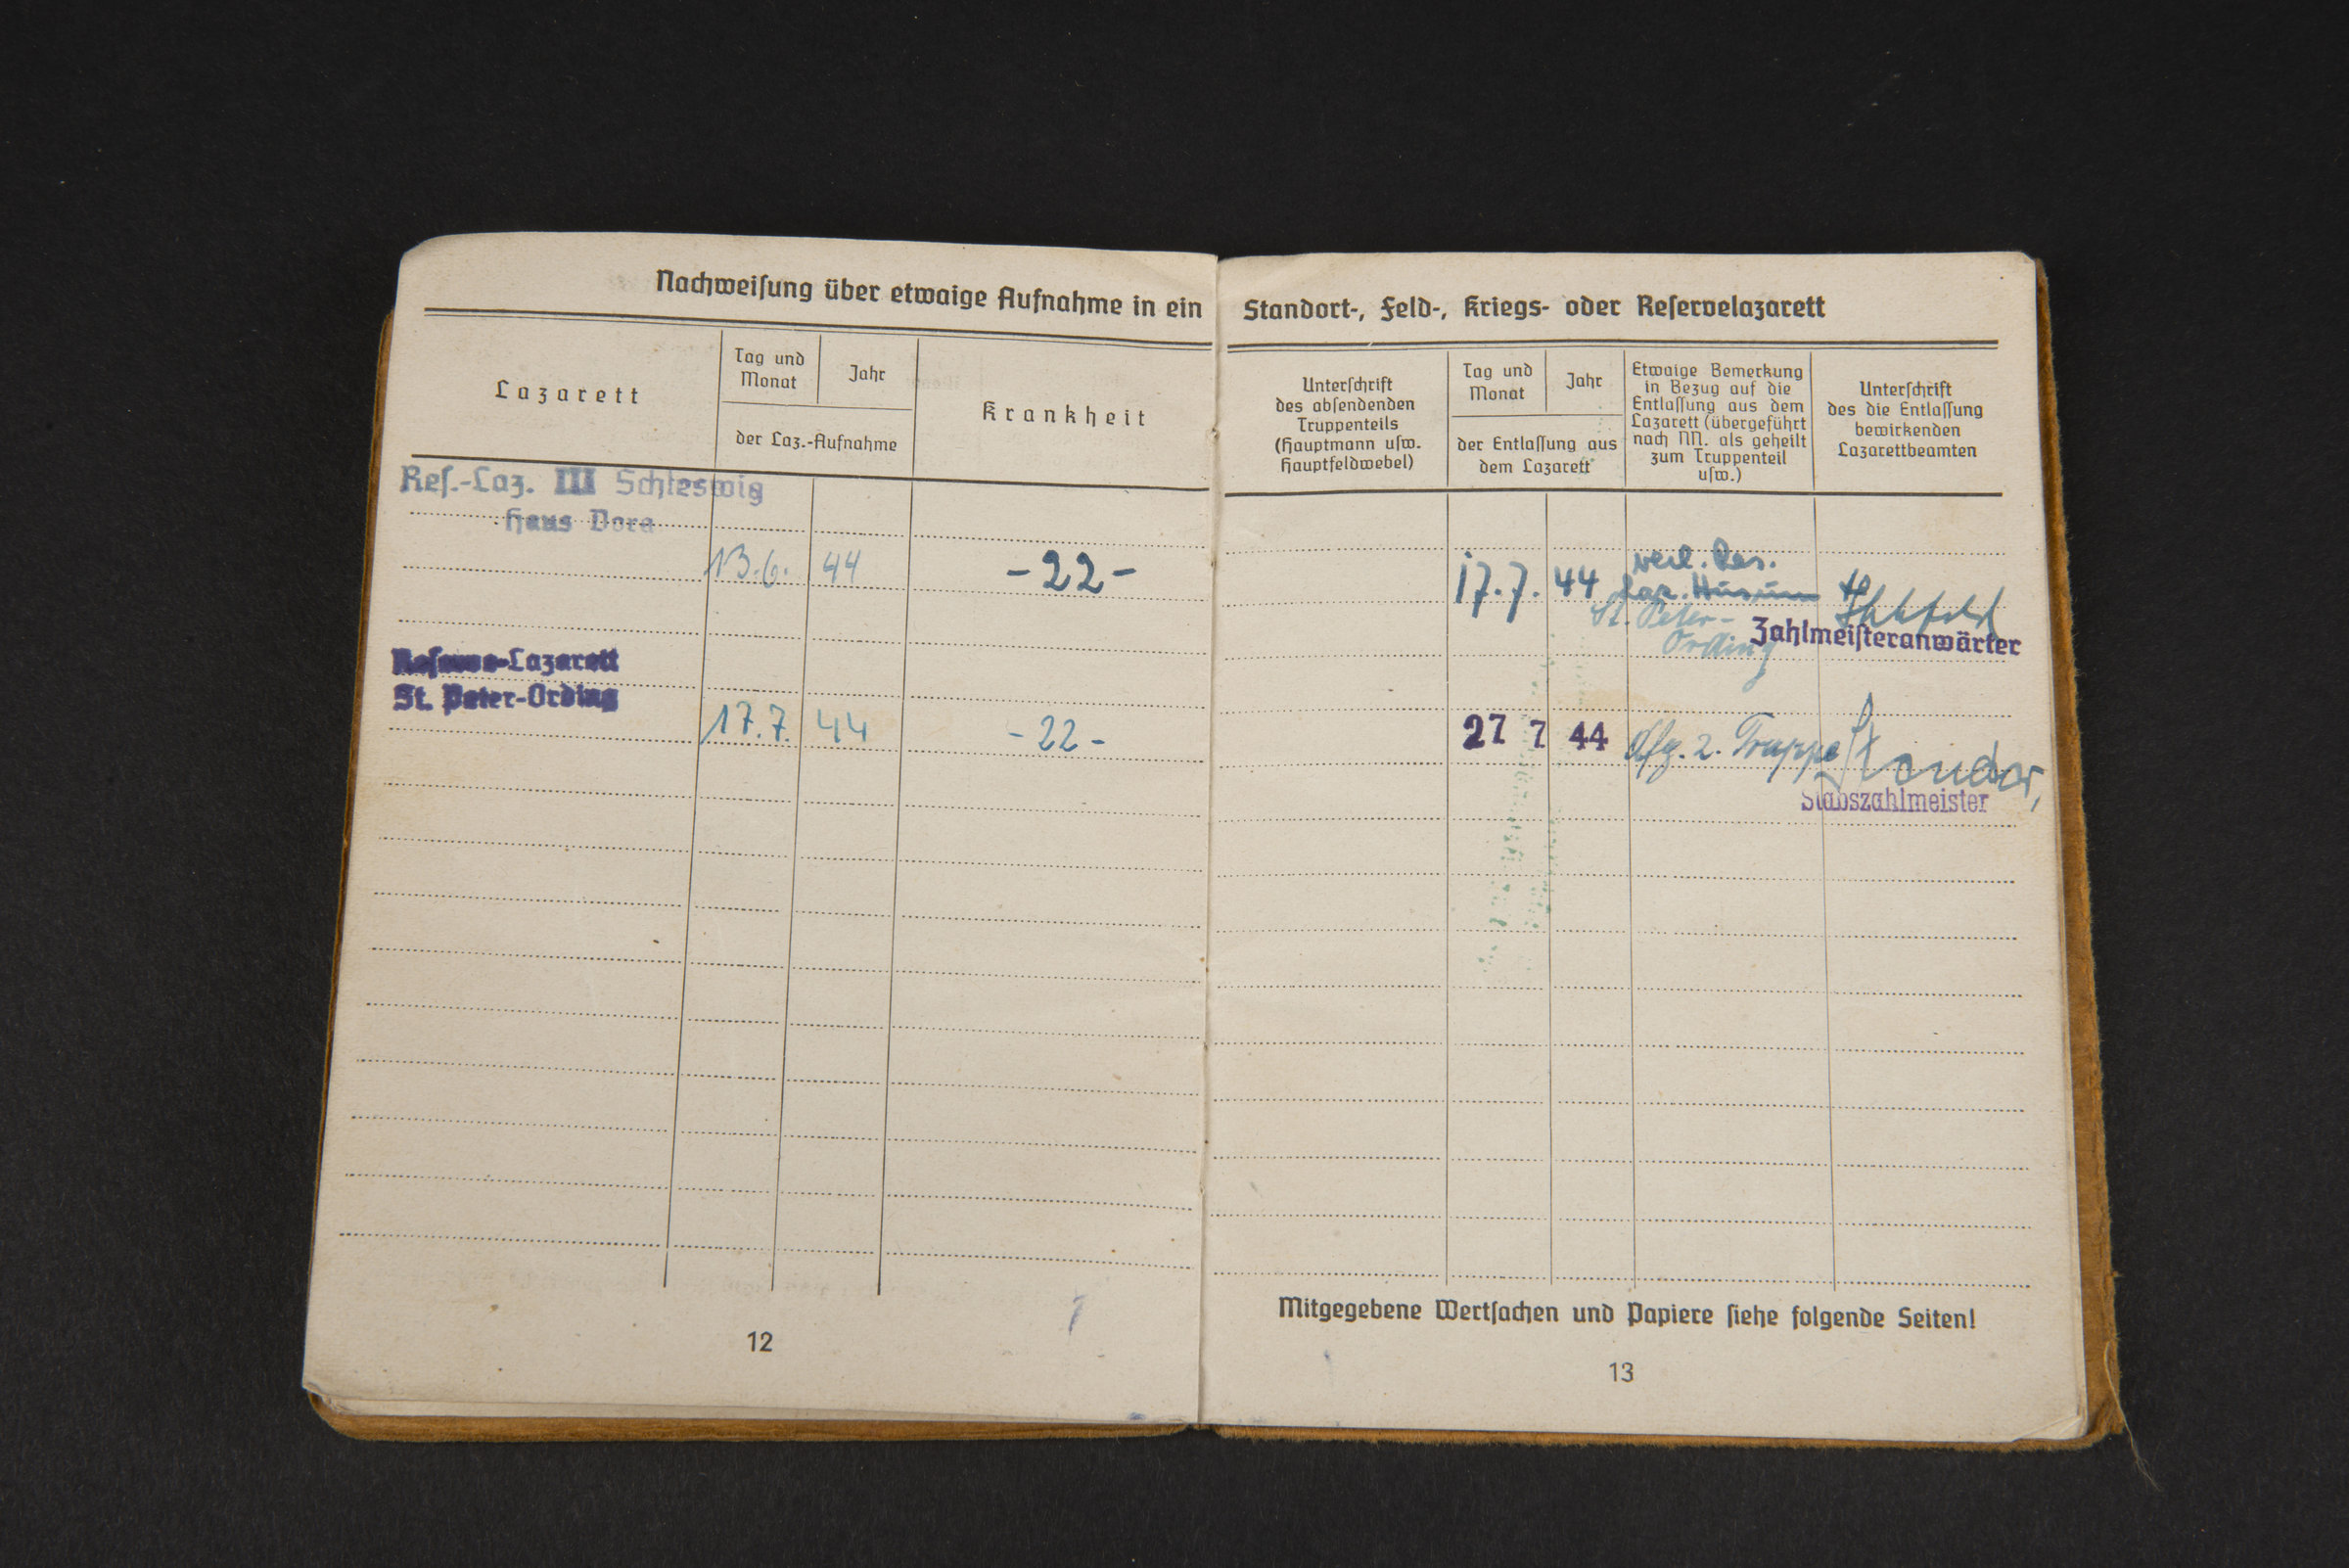 Nachweiſung über etwaige Aufnahme in ein
Lazarett
Tag und
Monat
Jahr
der Laz.-Aufnahme
Krankheit
Reſ.-Laz. III Schleswig
Haus Dora
13.6. 44 -22-
Reſerve-Lazarett
St. Peter-Ording
17.7. 44 -22-
12
Standort-, Feld-, Kriegs- oder Reſervelazarett
Unterſchrift
des abſendenden
Truppenteils
(Hauptmann uſw.
Hauptfeldwebel)
Tag und
Monat
Jahr
der Entlaſſung aus
dem Lazarett
Etwaige Bemerkung
in Bezug auf die
Entlaſſung aus dem
Lazarett (übergeführt
nach NN. als geheilt
zum Truppenteil
uſw.)
Unterſchrift
des die Entlaſſung
bewirkenden
Lazarettbeamten
verl. Res.
17.7. 44 Laz. Husum
St. Peter-
Ording
Zahlmeiſteranwärter
27 7 44 Truppe
Stabszahlmeister
Mitgegebene Wertſachen und Papiere ſiehe folgende Seiten!
13